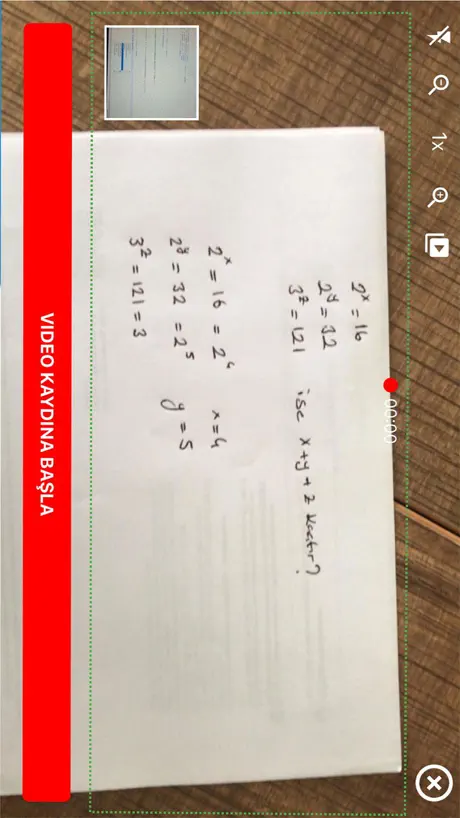 2^x = 16
2^y = 32
3^z = 121 ise x+y+z kaçtır?
2^x = 16 = 2^4 x = 4
2^y = 32 = 2^5 y = 5
3^z = 121 = 3
00:00
1x
VIDEO KAYDINA BAŞLA